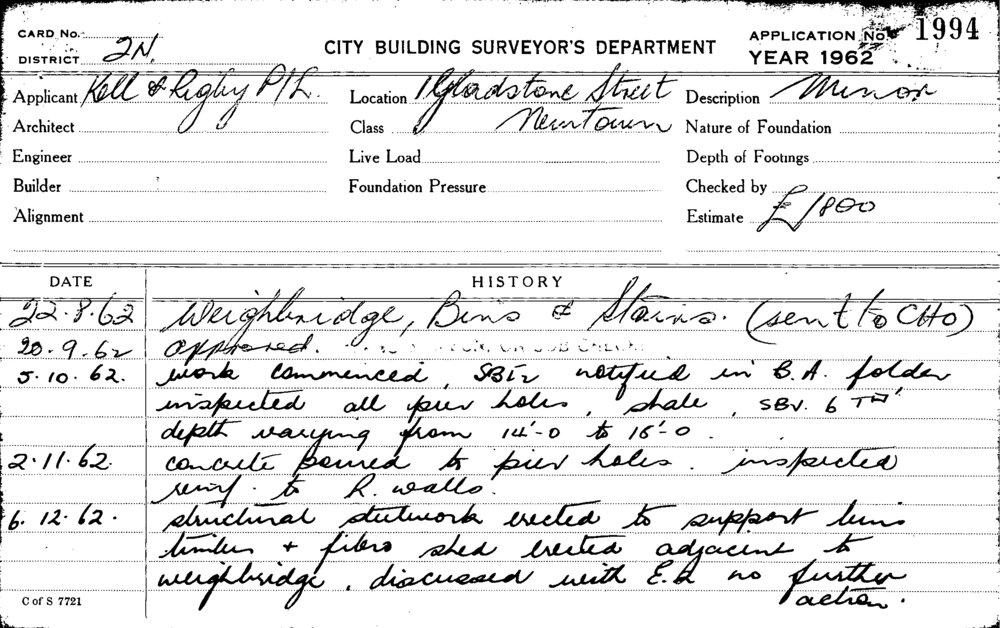 CARD No.
DISTRICT 2N.
CITY BUILDING SURVEYOR'S DEPARTMENT
APPLICATION No. 1994
YEAR 1962
Applicant Kell & Rigby P/L.
Location 1 Gladstone Street
Description Minor
Architect
Class Newtown
Nature of Foundation
Engineer
Live Load
Depth of Footings
Builder
Foundation Pressure
Checked by
Alignment
Estimate £1800
DATE HISTORY
22.8.62 Weighbridge, Bins & Stairs. (sent to CHO)
20.9.62 approved.
5.10.62. work commenced, notified in B.A. folder
inspected all pier holes, shale, SBV. 6TH
depth varying from 14'-0 to 16'-0.
2.11.62. concrete poured to pier holes. inspected
reinf. to R. walls.
6.12.62. structural steelwork erected to support bins
timber + fibro shed erected adjacent to
weighbridge, discussed with no further
action.
C of S 7721